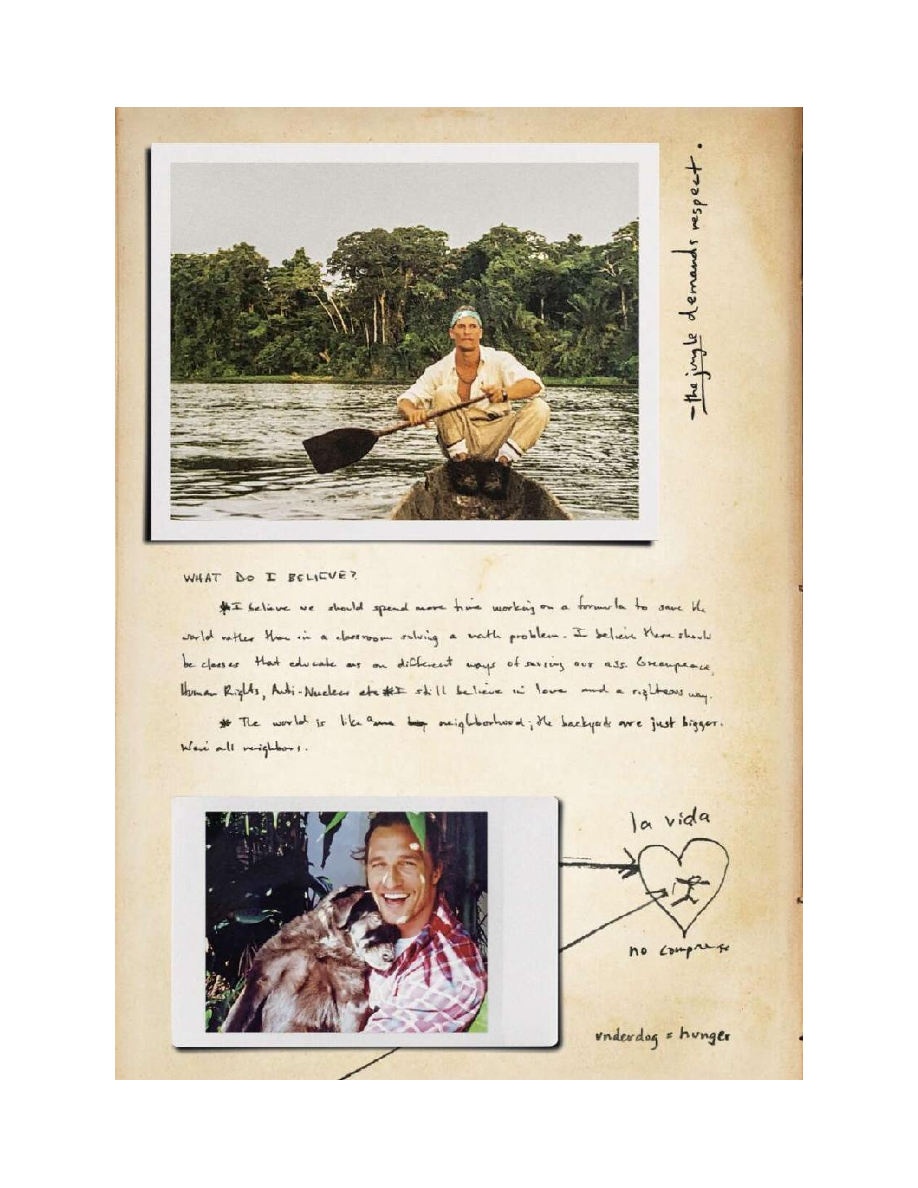 - the jungle demands respect.
WHAT DO I BELIEVE?
* I believe we should spend more time working on a formula to save the
world rather than in a classroom solving a math problem. I believe there should
be classes that educate us on different ways of saving our ass. Greenpeace,
Human Rights, Anti-Nuclear etc * I still believe in love and a righteous way.
* The world is like a neighborhood; the backyards are just bigger.
We're all neighbors.
la vida
no compromise
underdog = hunger